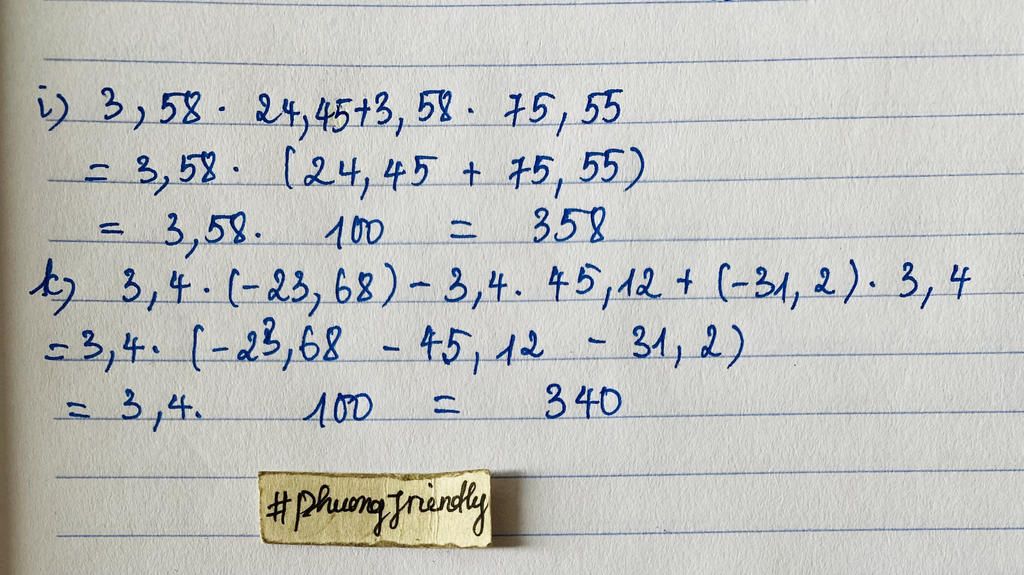 i) 3,58 . 24,45+3,58 . 75,55
= 3,58 . (24,45 + 75,55)
= 3,58. 100 = 358
k) 3,4 . (-23,68) - 3,4. 45,12 + (-31,2) . 3,4
= 3,4. (-23,68 - 45,12 - 31,2)
= 3,4. 100 = 340
#phuongfriendly